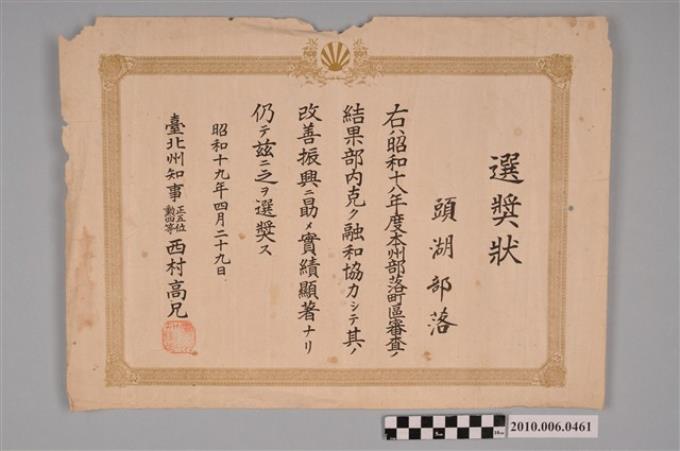 選奬狀
頭湖部落
右ハ昭和十八年度本州部落町區審査ノ
結果部内克ク融和協力シテ其ノ
改善振興ニ勗メ實績顯著ナリ
仍テ玆ニ之ヲ選奬ス
昭和十九年四月二十九日
臺北州知事正五位勳四等西村高兄
5cm
10cm
2010.006.0461